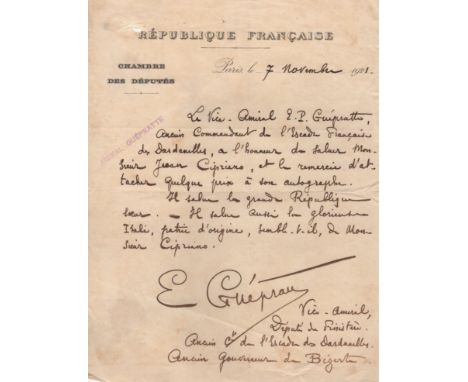 RÉPUBLIQUE FRANÇAISE
CHAMBRE
DES DÉPUTÉS
Paris, le 7 Novembre
AMIRAL GUÉPRATTE
Le Vice-Amiral E. P. Guépratte,
Ancien Commandant de l'Escadre Française
des Dardanelles, a l'honneur de saluer Mon-
sieur Jean Cipriano, et le remercie d'at-
tacher quelque prix à son autographe.
Il salue la grande République
sœur. - Il salue aussi la glorieuse
Italie, patrie d'origine, semble-t-il, de Mon-
sieur Cipriano.
E Guépratte
Vice-Amiral,
Député du Finistère.
Ancien Ct de l'Escadre des Dardanelles.
Ancien Gouverneur de Bizerte